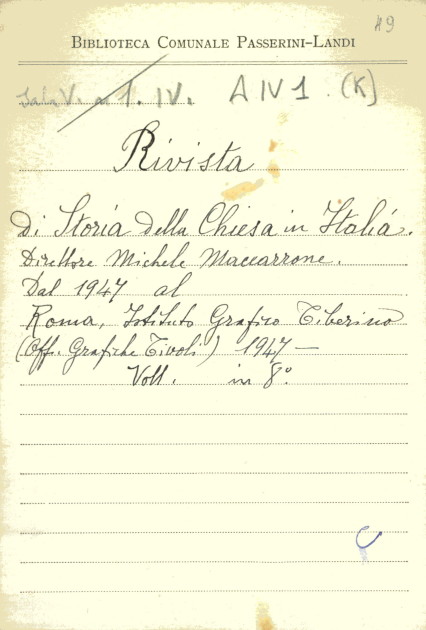 49
BIBLIOTECA COMUNALE PASSERINI-LANDI
Sala V. 1. IV. A IV 1. (K)
Rivista
Di Storia della Chiesa in Italiá.
Direttore Michele Maccarrone.
Dal 1947 al
Roma, Istituto Grafico Tiberino
(Off. Grafiche Tivoli) 1947 —
Voll. in 8º.